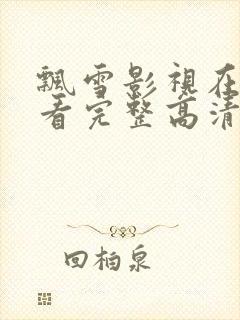 飄雪影視在
看完整高清
回柏泉